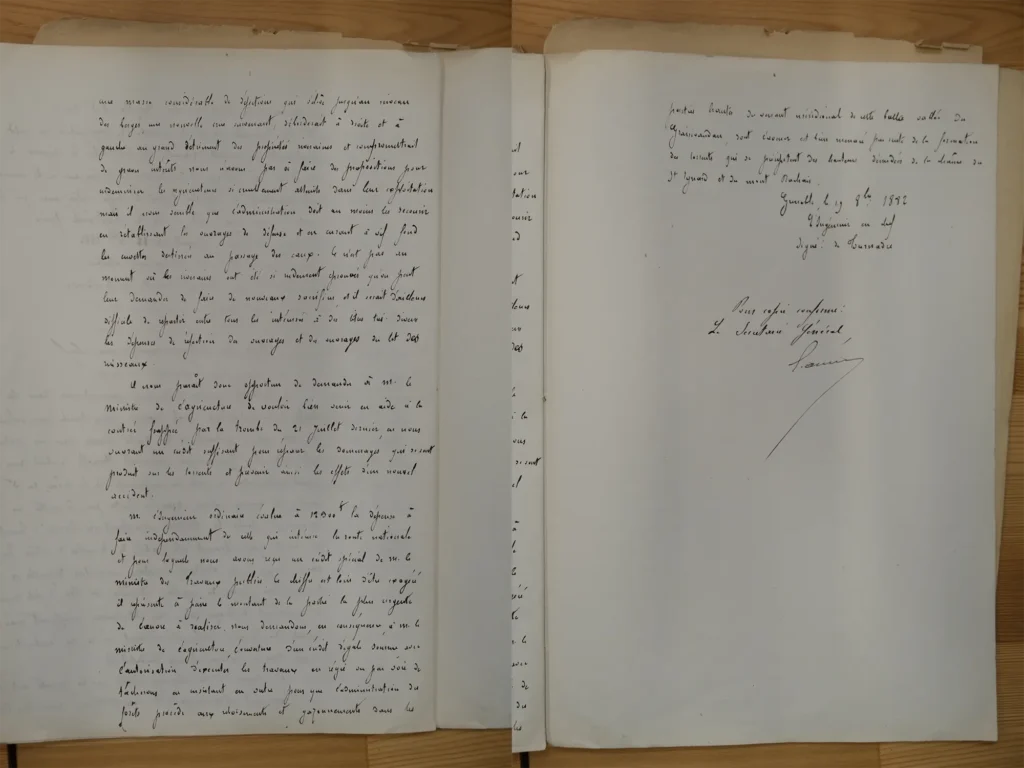 une masse considérable de déjections qui, isolée jusqu'au niveau
des berges, une nouvelle crue survenant, déborderait à droite et à
gauche au grand détriment des propriétés riveraines et compromettrait
de graves intérêts. nous n'avons pas à faire de propositions pour
indemniser les agriculteurs si cruellement atteints dans leur exploitation
mais il nous semble que l'administration doit au moins les secourir
en rétablissant les ouvrages de défense et en curant à vif fond
les cuvettes destinées au passage des eaux. Ce n'est pas au
moment où les riverains ont été si rudement éprouvés qu'on peut
leur demander de faire de nouveaux sacrifices et il serait d'ailleurs
difficile de répartir entre tous les intéressés à des titres très divers
les dépenses de réfection des ouvrages et du curage du lit des
ruisseaux.
Il nous paraît donc opportun de demander à M. le
ministre de l'agriculture de vouloir bien venir en aide à la
contrée frappée par la trombe du 21 Juillet dernier, en nous
ouvrant un crédit suffisant pour réparer les dommages qui se sont
produit sur les torrents et prévenir aussi les effets d'un nouvel
accident.
M. l'Ingénieur ordinaire évalue à 12500f la dépense à
faire indépendamment de celle qui intéresse la route nationale
et pour laquelle nous avons reçu un crédit spécial de M. le
ministre des Travaux publics. Ce chiffre est loin d'être exagéré
il représente à peine le montant de la partie la plus urgente
de l'œuvre à réaliser. nous demandons, en conséquence, à M. le
ministre de l'agriculture, l'ouverture d'un crédit d'égale somme avec
l'autorisation d'exécuter les travaux en régie ou par voie de
tâcherons en insistant en outre pour que l'administration des
forêts procède aux reboisements et gazonnements dans les
parties hautes du versant méridional de cette belle vallée du
Graisivaudan, dont l'avenir est bien menacé par suite de la formation
des torrents qui se précipitent des hauteurs dénudées de la chaîne du
St Eynard et du mont
Grenoble, le 19 8bre 1882
L'Ingénieur en chef
signé: de
Pour copie conforme:
Le Secrétaire Général